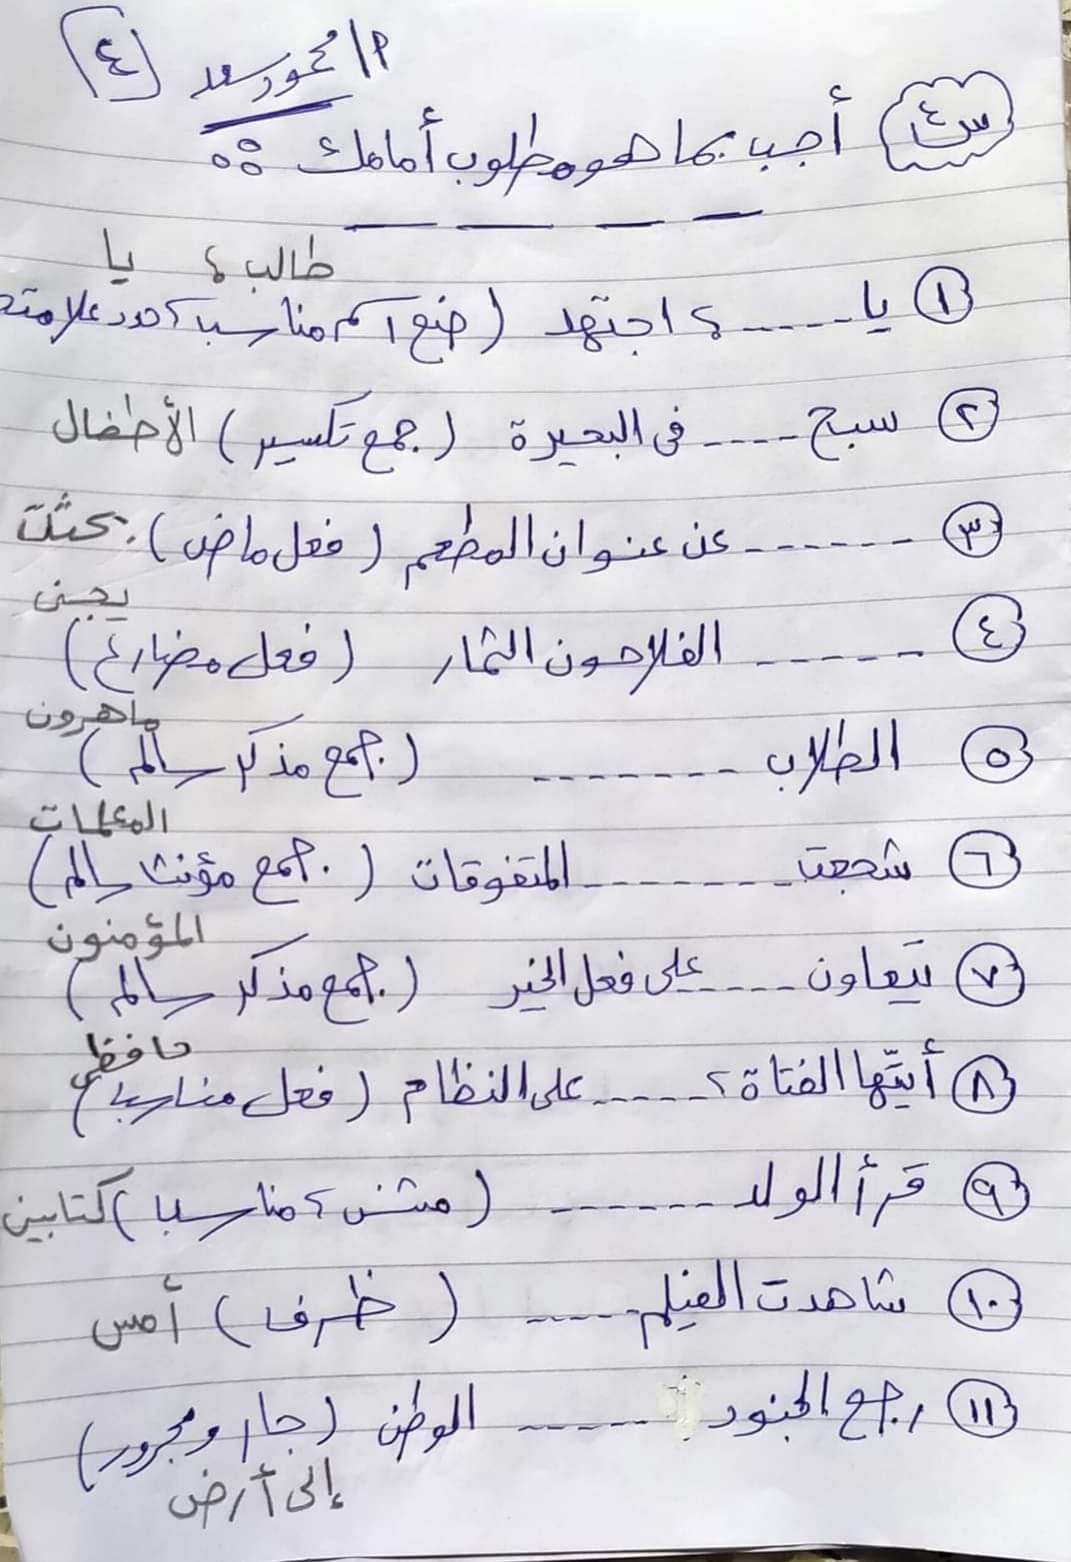 ٤
م/ محمود سعد
س٤ أجب بما هو مطلوب أمامك :
طالب ، يا
١ يا ..... ، اجتهد (ضع اسم مناسب ، حدد علامته
٢ سبح .... فى البحيرة (جمع تكسير) الأطفال
٣ ...... عن عنوان المطعم (فعل ماض) بحثت
يجنى
٤ ...... الفلاحون الثمار (فعل مضارع)
ماهرون
٥ الطلاب ....... (جمع مذكر سالم)
المعلمات
٦ شجعت ....... المتفوقات (جمع مؤنث سالم)
المؤمنون
٧ يتعاون ...... على فعل الخير (جمع مذكر سالم)
حافظى
٨ أيتها الفتاة ، ..... على النظام (فعل مناسب)
٩ قرأ الولد ....... (مثنى ، مناسب) كتابين
١٠ شاهدت الفيلم ..... (ظرف) أمس
١١ رجع الجنود ..... الوطن (جار ومجرور)
إلى أرض